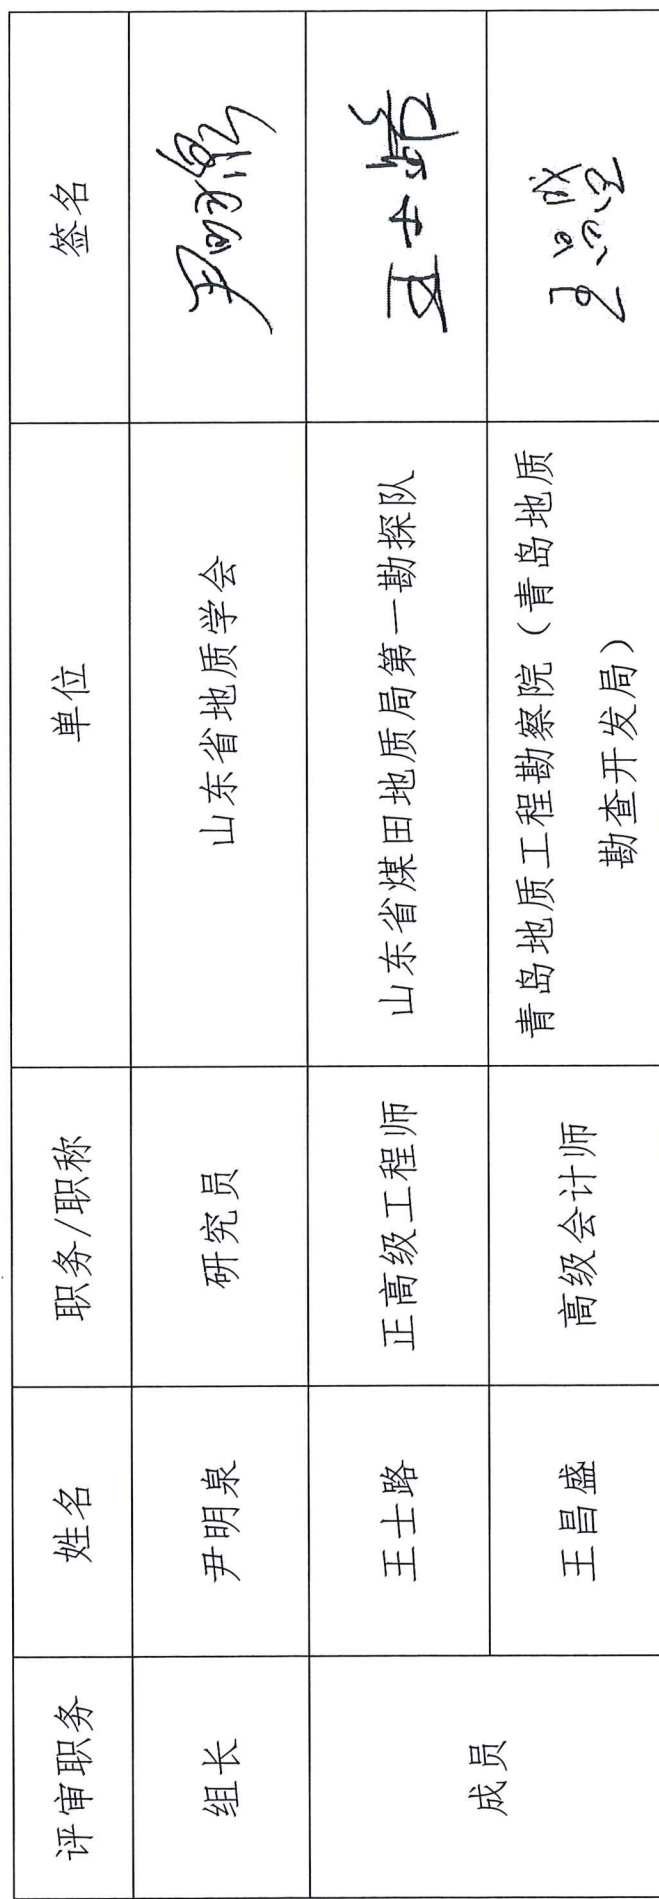 评审职务 姓名 职务/职称 单位 签名
组长 尹明泉 研究员 山东省地质学会
成员 王士路 正高级工程师 山东省煤田地质局第一勘探队 王士路
王昌盛 高级会计师 青岛地质工程勘察院（青岛地质
勘查开发局）